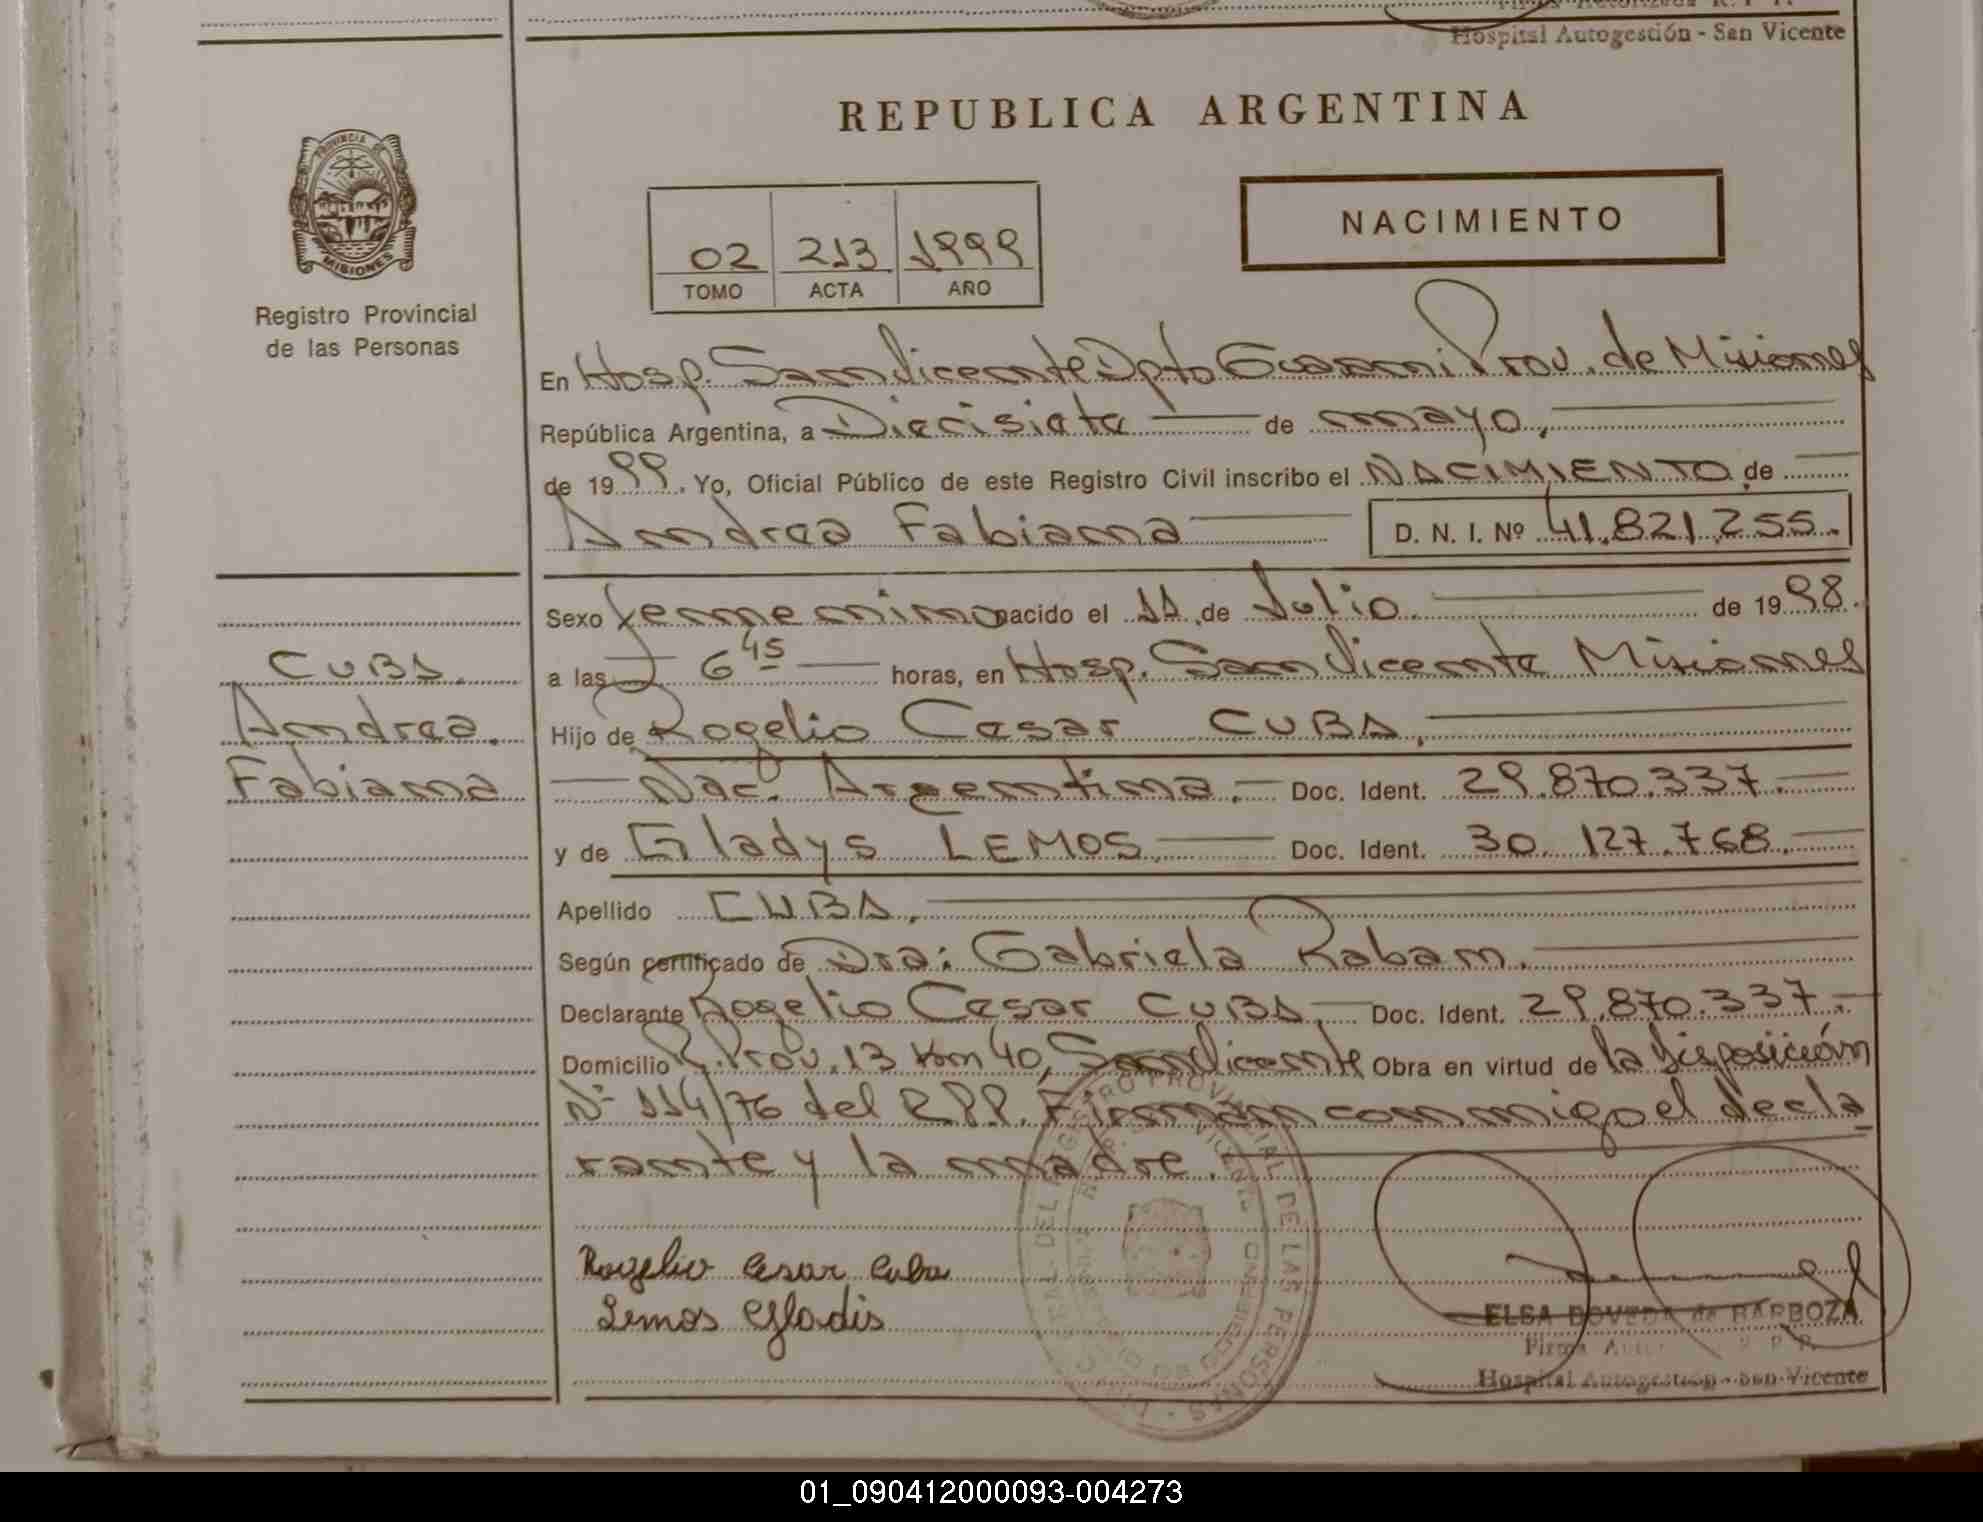 Hospital Autogestión - San Vicente
REPUBLICA ARGENTINA
PROVINCIA DE
MISIONES
Registro Provincial
de las Personas
02 213 1999
TOMO ACTA AÑO
NACIMIENTO
En Hosp. San Vicente Dpto Guarani Prov. de Misiones
República Argentina, a Diecisiete de mayo,
de 1999. Yo, Oficial Público de este Registro Civil inscribo el NACIMIENTO de
Andrea Fabiana D. N. I. Nº 41.821.255.
Sexo femenino nacido el 11 de Julio de 1998.
a las 6 45 horas, en Hosp. San Vicente Misiones
CUBA.
Andrea.
Fabiana
Hijo de Rogelio Cesar CUBA,
Nac. Argentina. Doc. Ident. 29.870.337.
y de Gladys LEMOS. Doc. Ident. 30.127.768.
Apellido CUBA.
Según certificado de Dra: Gabriela Raban.
Declarante Rogelio Cesar CUBA. Doc. Ident. 29.870.337.
Domicilio R. Prov. 13 Km 40, San Vicente Obra en virtud de la disposición
Nº 114/76 del R.P.P. Firman conmigo el decla
rante y la madre.
Rogelio Cesar Cuba
Lemos Gladis
REGISTRO PROVINCIAL DE LAS PERSONAS
ELSA BOVEDA de BARBOZA
Hospital Autogestión - San Vicente
01_090412000093-004273